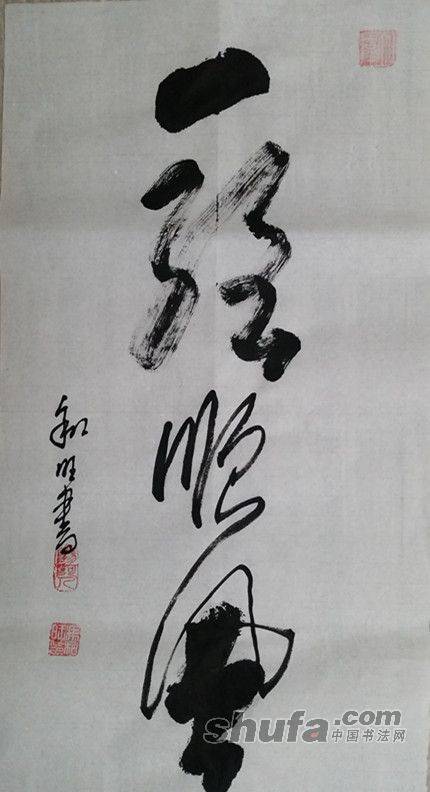 一路順風
和旺書
shufa.com
中国书法网